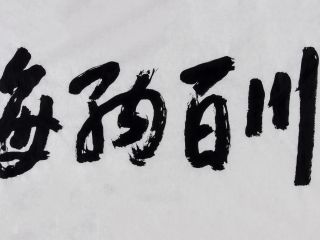 川百纳海